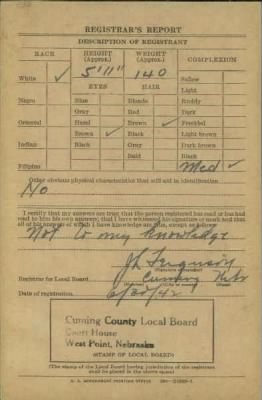 REGISTRAR'S REPORT
DESCRIPTION OF REGISTRANT
RACE HEIGHT (Approx.) WEIGHT (Approx.) COMPLEXION
White ✓ 5'11" 140 Sallow
Light
EYES HAIR
Negro Blue Blonde Ruddy
Gray Red Dark
Oriental Hazel Brown ✓ Freckled
Brown ✓ Black Light brown
Indian Black Gray Dark brown
Bald Black
Filipino Med ✓
Other obvious physical characteristics that will aid in identification
No
I certify that my answers are true; that the person registered has read or has had
read to him his own answers; that I have witnessed his signature or mark and that
all of his answers of which I have knowledge are true, except as follows:
Not to my knowledge
Ferguson
Registrar for Local Board Cuming Nebr
Date of registration 6/30/42
Cuming County Local Board
Court House
West Point, Nebraska
(STAMP OF LOCAL BOARD)
(The stamp of the Local Board having jurisdiction of the registrant
shall be placed in the above space)
U. S. GOVERNMENT PRINTING OFFICE